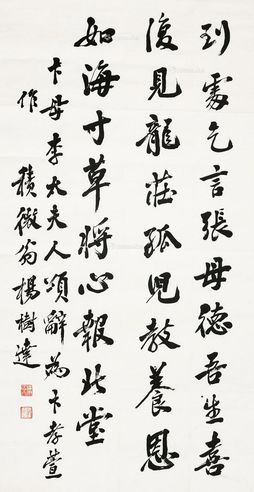 到處乞言張母德吾生喜
復見龍莊孤兒教養恩
如海寸草將心報此堂
卞母李太夫人頌辭為卞孝萱
作
積微翁楊樹達